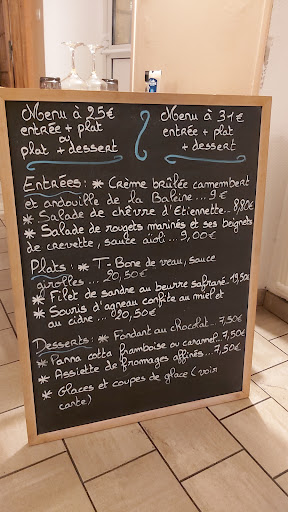 Menu à 25€
entrée + plat
ou
plat + dessert
Menu à 31€
entrée + plat
+ dessert
Entrées : * Crème brûlée camembert
et andouille de la Baleine ... 9 €
* Salade de chêvre d'Etiennette... 8,80€
* Salade de rougets marinés et ses beignets
de crevette, sauce aïoli ... 9,00€
Plats : * T-Bone de veau, sauce
girolles .... 20,50€
* Filet de sandre au beurre safrané. 19,50€
* Souris d'agneau confite au miel et
au cidre ... 20,50€
Desserts : * Fondant au chocolat.. 7,50€
* Panna cotta framboise ou caramel.. 7,50€
* Assiette de fromages affinés... 7,50€
* Glaces et coupes de glace (voir
carte)